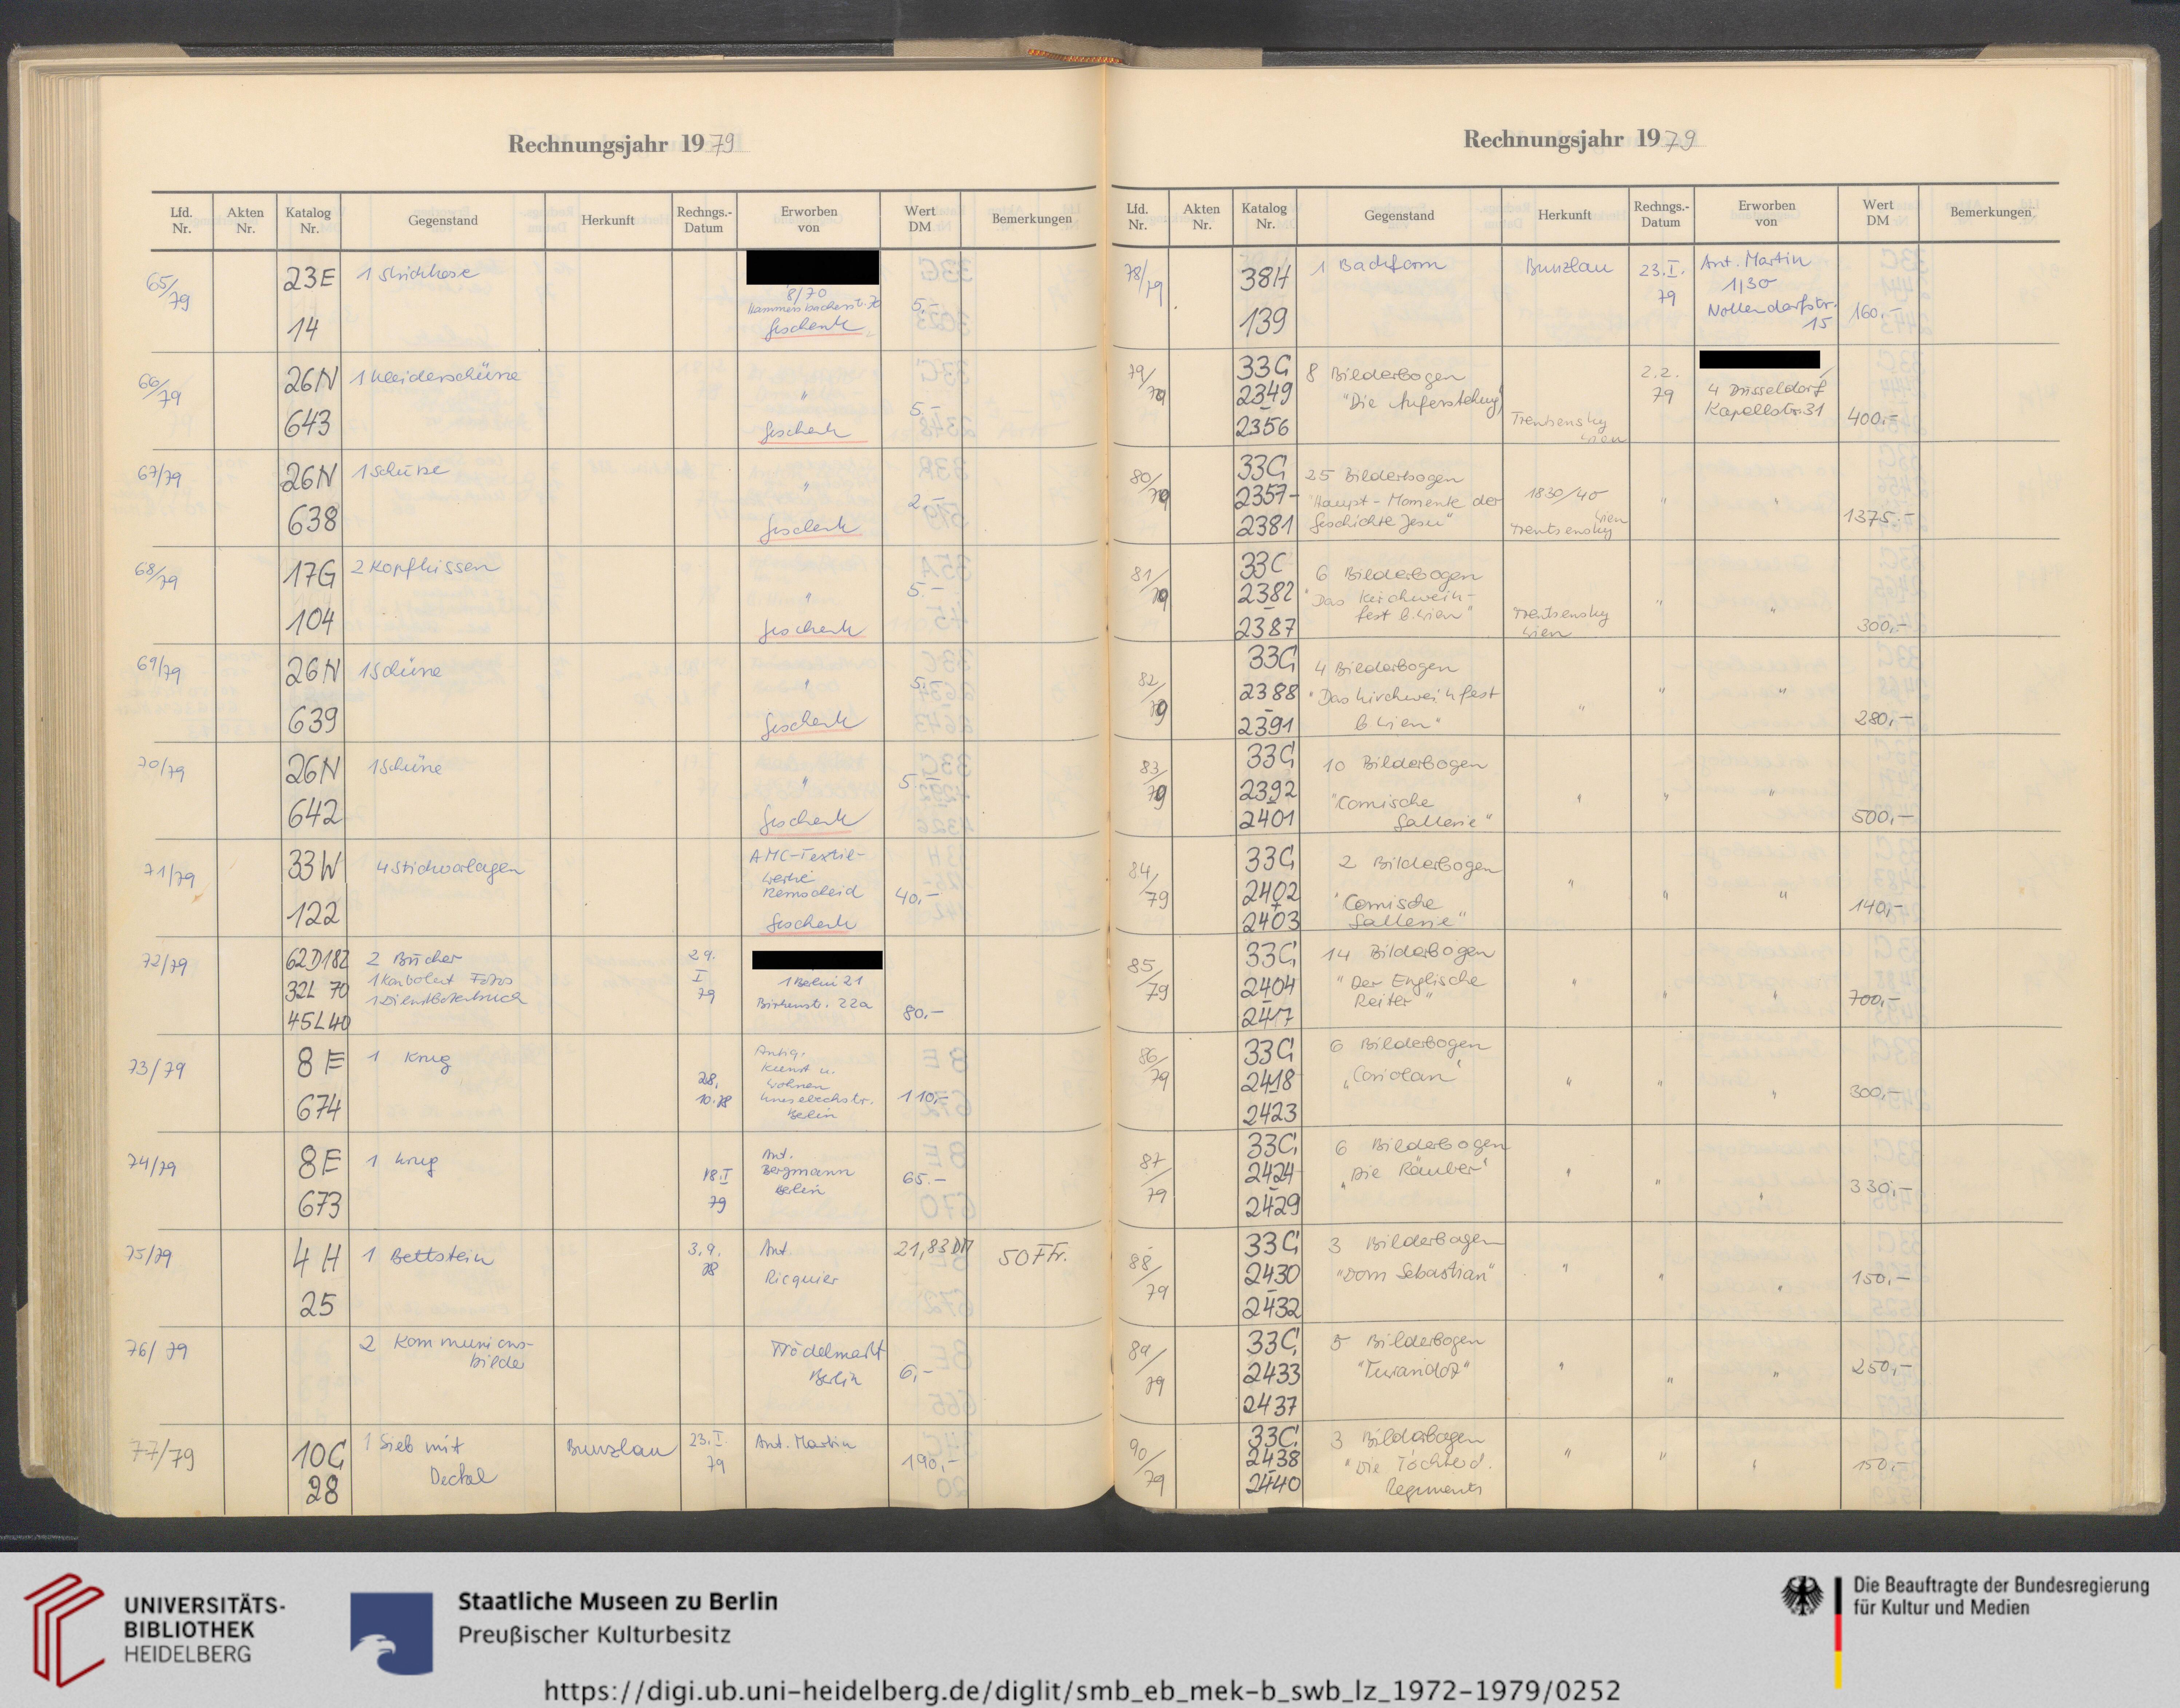 Rechnungsjahr 1979
Lfd. Nr. Akten Nr. Katalog Nr. Gegenstand Herkunft Rechngs.-Datum Erworben von Wert DM Bemerkungen
65/79 23E 14 1 Strickhose
8/70
5.-
Geschenk
66/79 26N 643 1 Kleiderschürze " 5.-
Geschenk
67/79 26N 638 1 Schürze " 2.-
Geschenk
68/79 17G 104 2 Kopfkissen " 5.-
Geschenk
69/79 26N 639 1 Schürze " 5.-
Geschenk
70/79 26N 642 1 Schürze " 5.-
Geschenk
71/79 33W 122 4 Stickvorlagen AMC-Textil-
werke
Remscheid 40,-
Geschenk
72/79 62D182 2 Bücher 29.
32L 70 Fotos I
45L40 1 Dienstbotenbuch 79
1 Berlin 21
Birkenstr. 22a 80.-
73/79 8E 674 1 Krug 28.
10.78
Antiq.
Kunst u.
Wohnen
Knesebechstr.
Berlin 110,-
74/79 8E 673 1 Krug 18.I
79
Ant.
Bergmann
Berlin 65.-
75/79 4H 25 1 Bettstein 3.9.
78
Ant.
Ricquier 21,83 DM 50 FFr.
76/79 2 Kommunions-
bilder Trödelmarkt
Berlin 6,-
77/79 10G 28 1 Sieb mit
Deckel Bunzlau 23.I
79 Ant. Martin 190,-
Rechnungsjahr 1979
Lfd. Nr. Akten Nr. Katalog Nr. Gegenstand Herkunft Rechngs.-Datum Erworben von Wert DM Bemerkungen
78/79 38H 139 1 Backform Bunzlau 23.I.
79
Ant. Martin
1/30
Nollendorfstr.
15 160,-
79/79 33G 2349 - 2356 8 Bilderbogen
"Die Auferstehung" Trentsensky
Wien 2.2.
79
4 Düsseldorf
Kapellstr. 31 400,-
80/79 33G 2357- 2381 25 Bilderbogen
"Haupt-Momente der
Geschichte Jesu" 1830/40
Wien
Trentsensky " " 1375.-
81/79 33G 2382 - 2387 6 Bilderbogen
"Das Kirchweih-
fest b. Wien" Trentsensky
Wien " " 300,-
82/79 33G 2388 - 2391 4 Bilderbogen
"Das Kirchweihfest
b Wien" " " " 280,-
83/79 33G 2392 - 2401 10 Bilderbogen
"Comische
Gallerie" " " " 500,-
84/79 33G 2402 + 2403 2 Bilderbogen
"Comische
Gallerie" " " " 140,-
85/79 33G 2404 - 2417 14 Bilderbogen
"Der Englische
Reiter" " " " 700,-
86/79 33G 2418 - 2423 6 Bilderbogen
"Coriolan" " " " 300,-
87/79 33G 2424 - 2429 6 Bilderbogen
"Die Räuber" " " " 330,-
88/79 33G 2430 - 2432 3 Bilderbogen
"Dom Sebastian" " " " 150,-
89/79 33G 2433 2437 5 Bilderbogen
"Turandot" " " " 250,-
90/79 33G 2438 - 2440 3 Bilderbogen
"Die Töchter d.
Regiments " " " 150,-
UNIVERSITÄTS-
BIBLIOTHEK
HEIDELBERG
Staatliche Museen zu Berlin
Preußischer Kulturbesitz
Die Beauftragte der Bundesregierung
für Kultur und Medien
https://digi.ub.uni-heidelberg.de/diglit/smb_eb_mek-b_swb_lz_1972-1979/0252